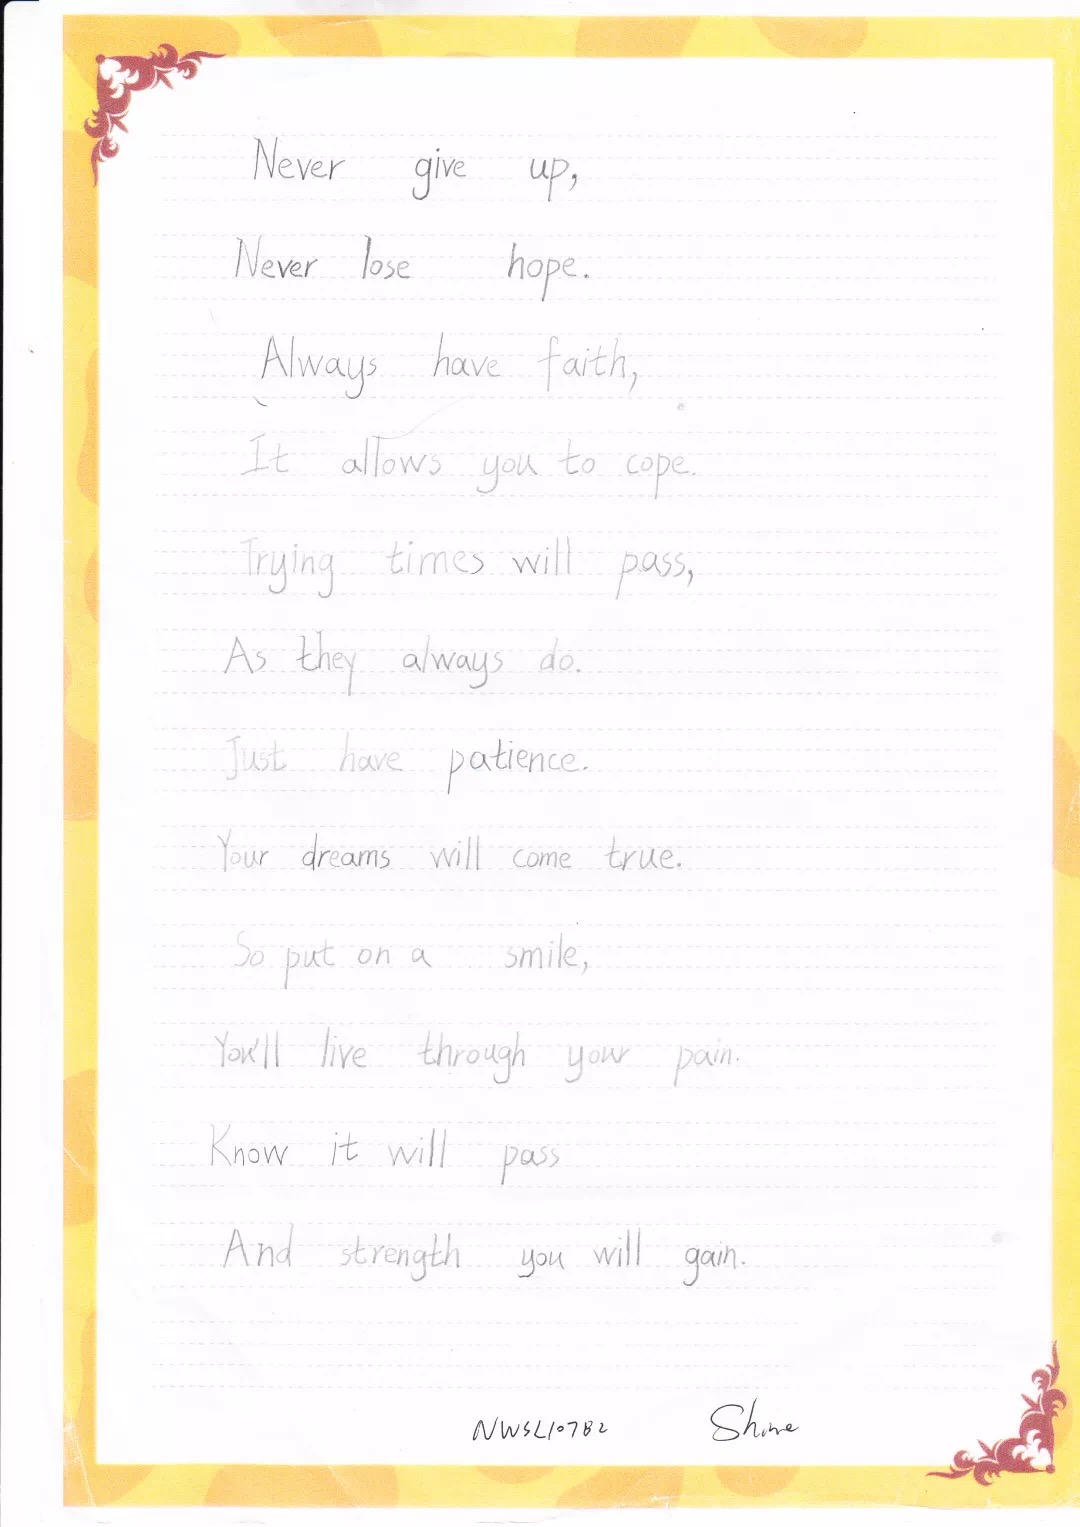 Never give up,
Never lose hope.
Always have faith,
It allows you to cope.
Trying times will pass,
As they always do.
Just have patience.
Your dreams will come true.
So put on a smile,
You'll live through your pain.
Know it will pass
And strength you will gain.
NWSL10782 Shine